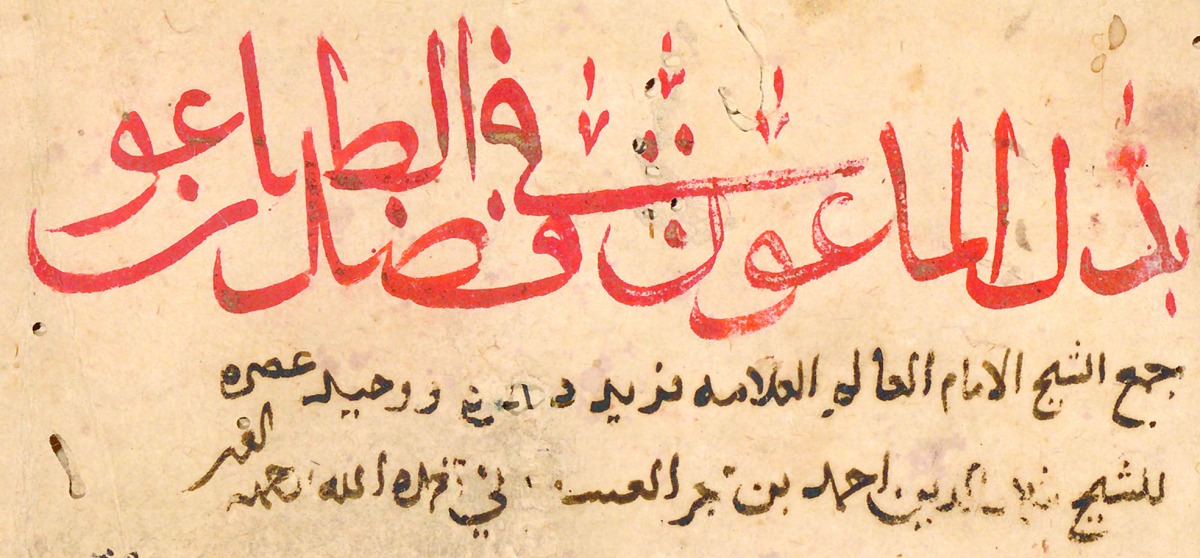 بذل الماعون في فضل الطاعون
جمع الشيخ الامام العالم العلامه فريد د ووحيد عصره
للشيخ شهاب الدين احمد بن حجر العسقلاني تغمده الله الرحمه